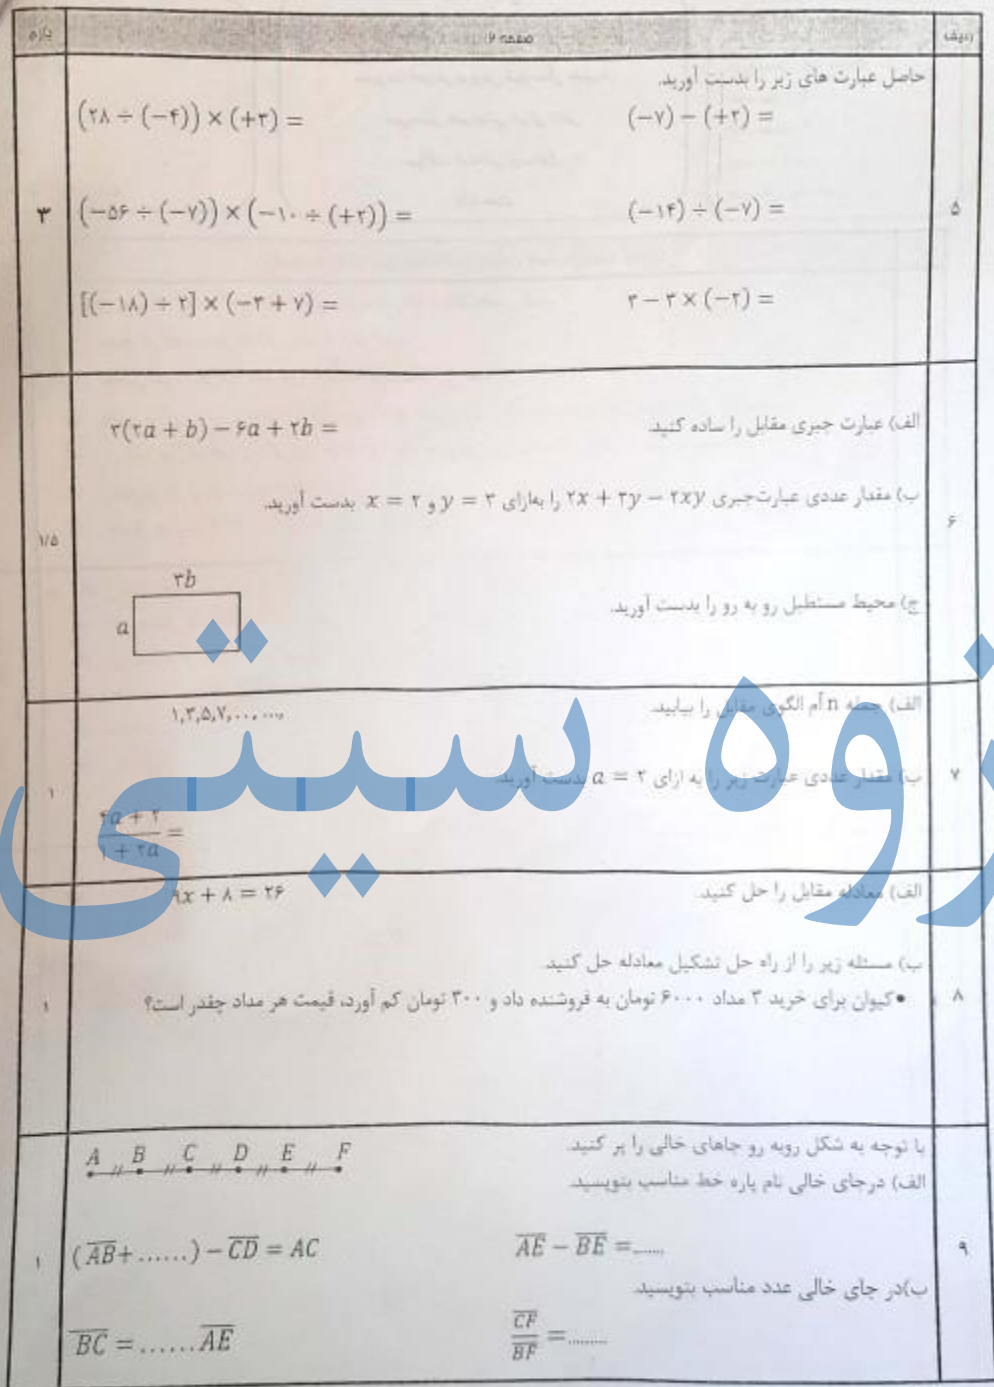 ردیف صفحه ۲ بارم
۵
حاصل عبارت های زیر را بدست آورید.
(−۷) − (+۲) =
(۲۸ ÷ (−۴)) × (+۳) =
(−۱۴) ÷ (−۷) =
(−۵۶ ÷ (−۷)) × (−۱۰ ÷ (+۲)) =
۳ − ۳ × (−۲) =
[(−۱۸) ÷ ۲] × (−۳ + ۷) =
۳
۶
الف) عبارت جبری مقابل را ساده کنید.
۳(۲a + b) − ۶a + ۲b =
ب) مقدار عددی عبارت‌جبری ۲x + ۳y − ۲xy را به‌ازای y = ۳ و x = ۲ بدست آورید.
ج) محیط مستطیل رو به رو را بدست آورید.
۳b
a
۱/۵
۷
الف) جمله n اُم الگوی مقابل را بیابید.
۱,۳,۵,۷,...,...,
ب) مقدار عددی عبارت زیر را به ازای a = ۲ بدست آورید.
a + ۲
۱ + ۲a =
۱
۸
الف) معادله مقابل را حل کنید.
۹x + ۸ = ۲۶
ب) مسئله زیر را از راه حل تشکیل معادله حل کنید.
•کیوان برای خرید ۳ مداد ۶۰۰۰ تومان به فروشنده داد و ۳۰۰ تومان کم آورد، قیمت هر مداد چقدر است؟
۱
۹
با توجه به شکل روبه رو جاهای خالی را پر کنید.
A B C D E F
الف) درجای خالی نام پاره خط مناسب بنویسید.
AE − BE =......
(AB+ ......) − CD = AC
ب)در جای خالی عدد مناسب بنویسید.
CF
BF =........
BC = ...... AE
۱
زوه سیتی